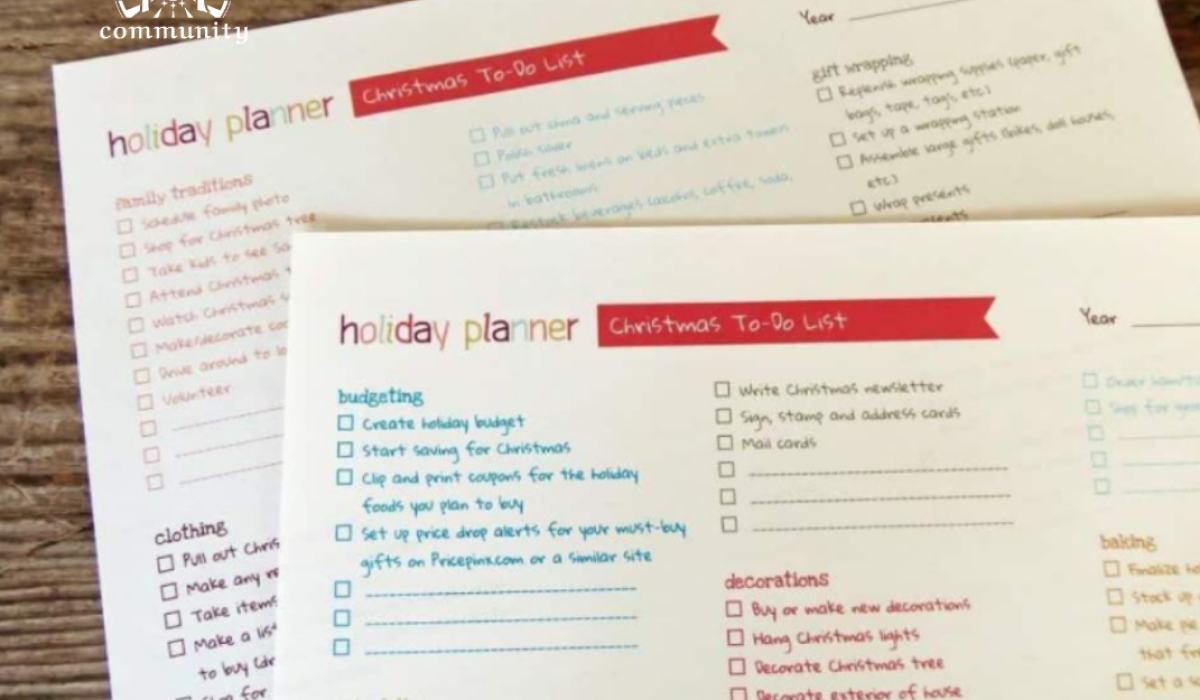 community
Year
holiday planner
Christmas To-Do List
family traditions
Schedule family photo
Shop for Christmas tree
Take kids to see
Attend Christmas
Watch Christmas
Make/decorate
Drive around to
Volunteer
clothing
Pull out
Make any
Take items
Make a list
to buy
Shop for
Pull out china and serving pieces
Polish silver
Put fresh linens on beds and extra towels
in bathrooms
Restock beverages (alcohol, coffee, soda,
gift wrapping
Replenish wrapping supplies (paper, gift
bags, tape, tags, etc.)
Set up a wrapping station
Assemble large gifts (bikes, doll houses,
etc.)
Wrap presents
holiday planner
Christmas To-Do List
Year
budgeting
Create holiday budget
Start saving for Christmas
Clip and print coupons for the holiday
foods you plan to buy
Set up price drop alerts for your must-buy
gifts on Pricepinx.com or a similar site
Write Christmas newsletter
Sign, stamp and address cards
Mail cards
decorations
Buy or make new decorations
Hang Christmas lights
Decorate Christmas tree
Decorate exterior of house
Order
Shop for
baking
Finalize
Stock up
Make pie
that
Set a